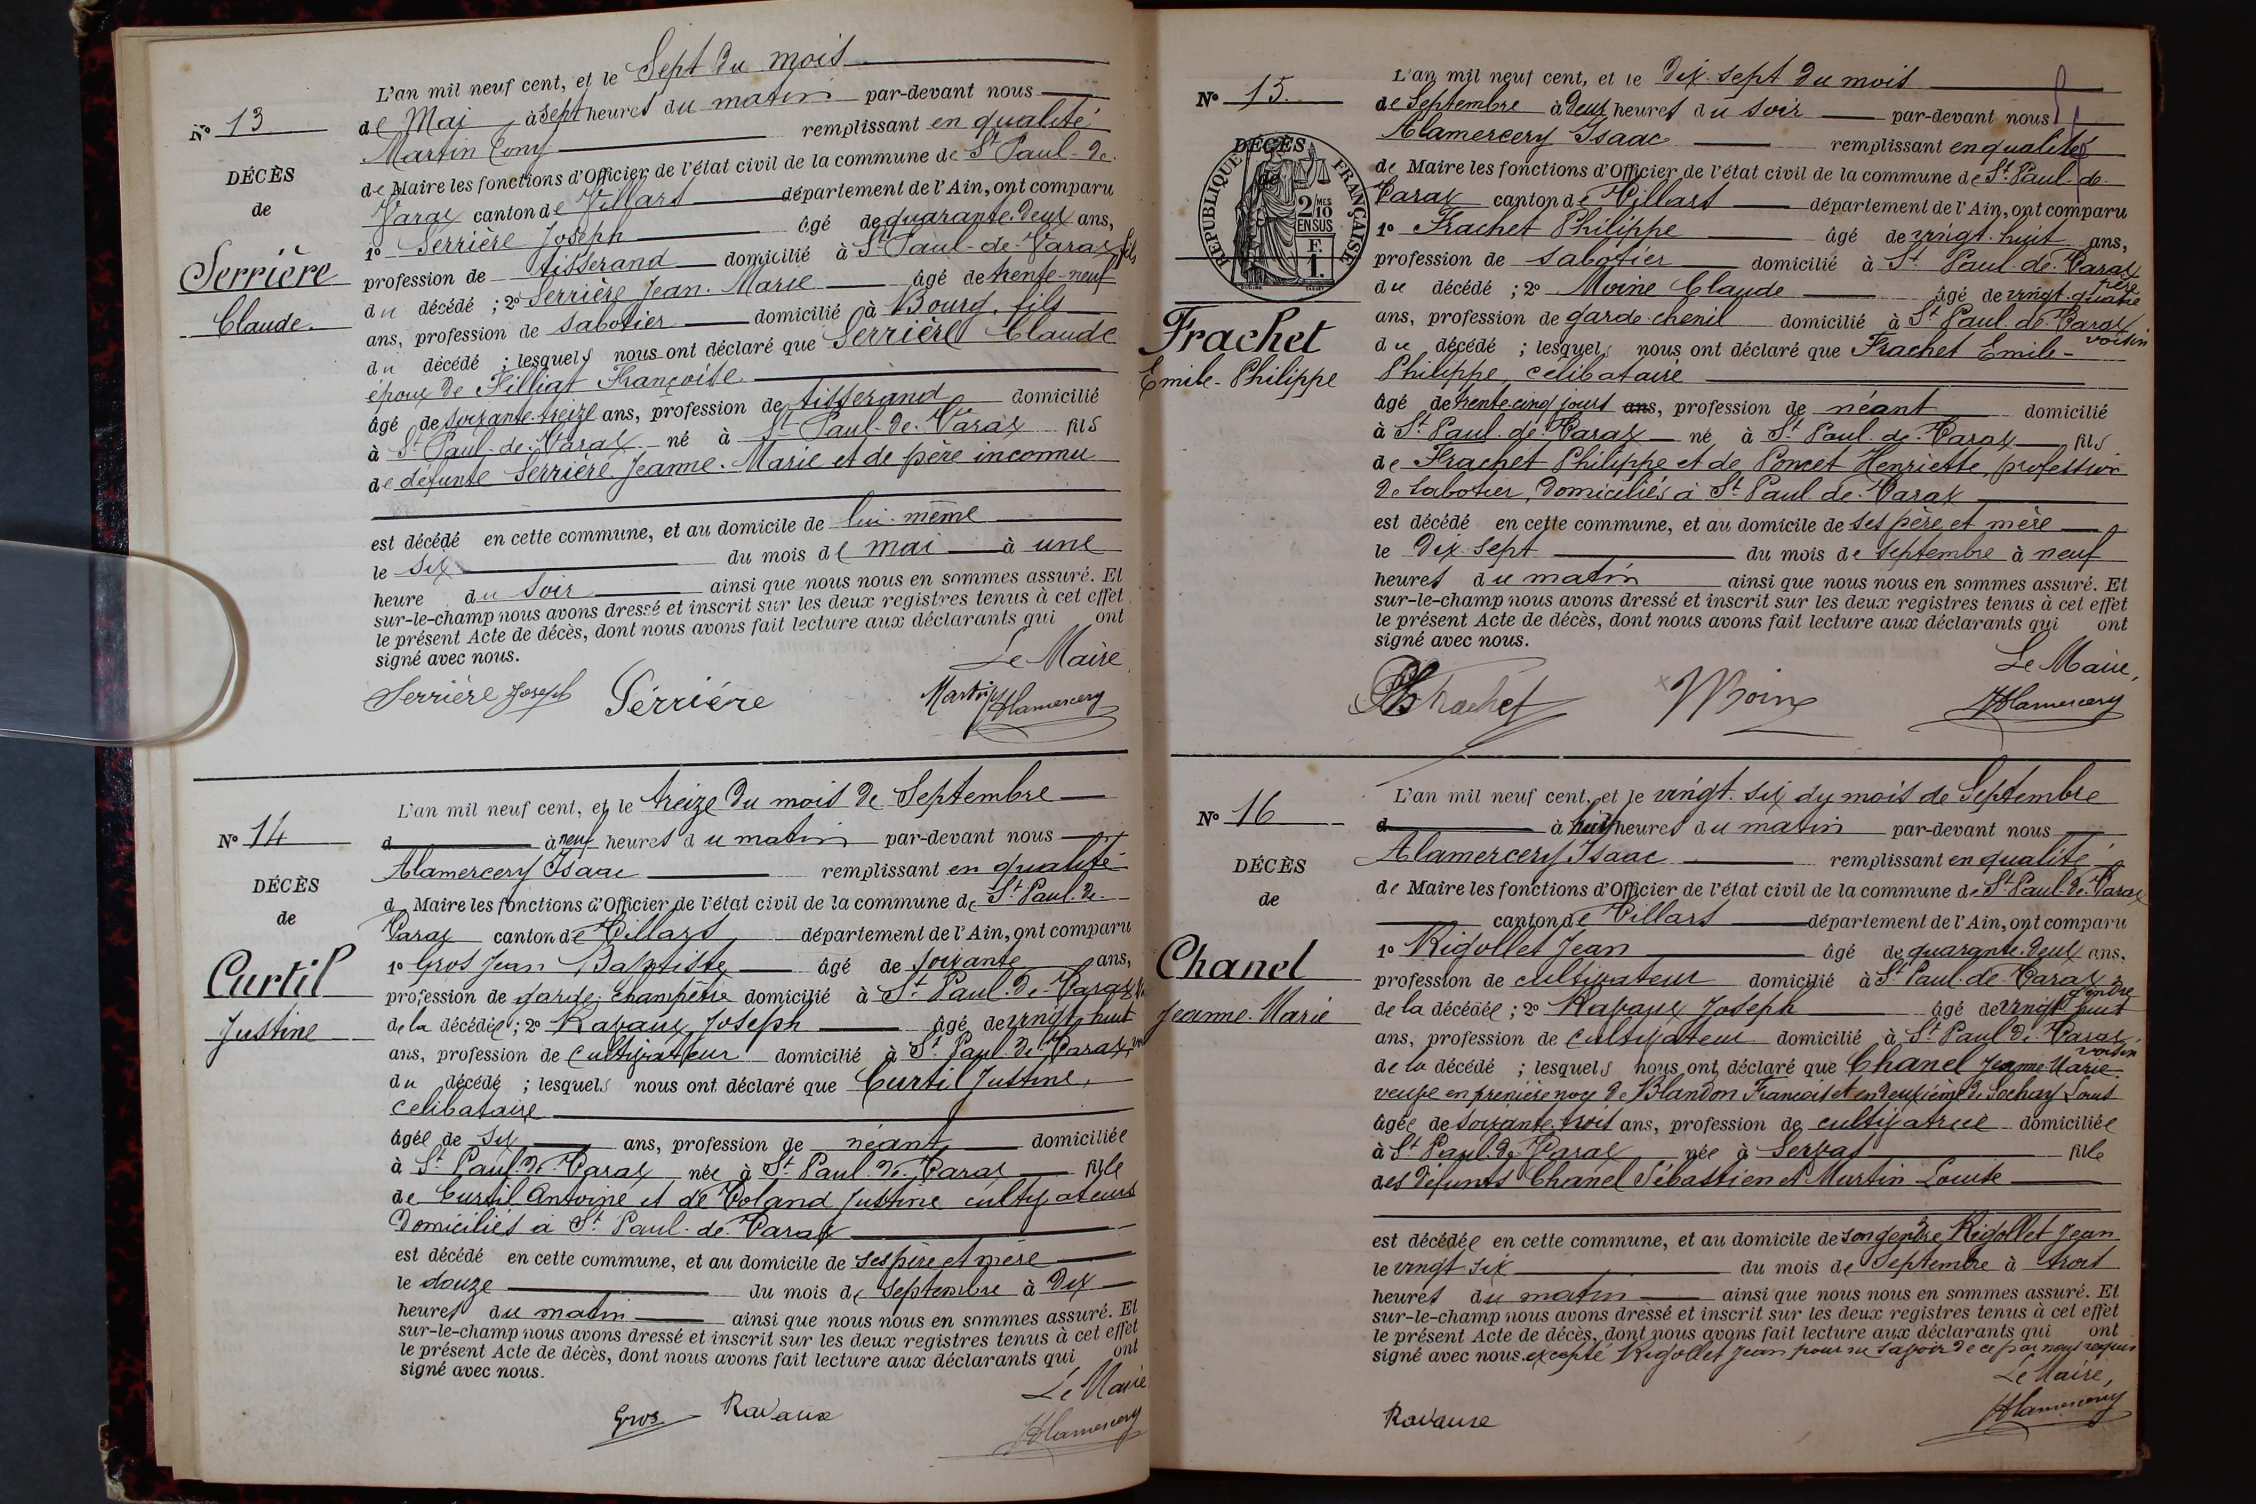 N° 13
DÉCÈS
de
Serrière
Claude.
L'an mil neuf cent, et le Sept du mois
de Mai à sept heures du matin par-devant nous
Martin Cony remplissant en qualité
de Maire les fonctions d'Officier de l'état civil de la commune de St Paul-de-
Varax canton de Villars département de l'Ain, ont comparu
1° Serrière Joseph âgé de quarante-deux ans,
profession de tisserand domicilié à St Paul-de-Varax, fils
du décédé ; 2° Serrière Jean-Marie âgé de trente-neuf
ans, profession de sabotier domicilié à Bourg, fils
du décédé ; lesquels nous ont déclaré que Serrière Claude
époux de Filliat Françoise
âgé de soixante-treize ans, profession de tisserand domicilié
à St Paul-de-Varax né à St Paul-de-Varax fils
de défunte Serrière Jeanne-Marie et de père inconnu
est décédé en cette commune, et au domicile de lui-même
le six du mois de mai à une
heure du soir ainsi que nous nous en sommes assuré. Et
sur-le-champ nous avons dressé et inscrit sur les deux registres tenus à cet effet
le présent Acte de décès, dont nous avons fait lecture aux déclarants qui ont
signé avec nous.
Le Maire
Serrière Joseph Serrière Martin Alamercery
N° 14
DÉCÈS
de
Curtil
Justine
L'an mil neuf cent, et le treize du mois de Septembre
d à neuf heures du matin par-devant nous
Alamercery Isaac remplissant en qualité
d Maire les fonctions d'Officier de l'état civil de la commune de St Paul-de-
Varax canton de Villars département de l'Ain, ont comparu
1° Gros Jean Baptiste âgé de soixante ans,
profession de garde-champêtre domicilié à St Paul-de-Varax
de la décédée ; 2° Ravaux Joseph âgé de vingt-huit
ans, profession de cultivateur domicilié à St Paul-de-Varax
du décédé ; lesquels nous ont déclaré que Curtil Justine,
célibataire
âgée de six ans, profession de néant domiciliée
à St Paul-de-Varax née à St Paul-de-Varax fille
de Curtil Antoine et de Voland Justine cultivateurs
domiciliés à St Paul-de-Varax
est décédé en cette commune, et au domicile de ses père et mère
le douze du mois de septembre à dix
heures du matin ainsi que nous nous en sommes assuré. Et
sur-le-champ nous avons dressé et inscrit sur les deux registres tenus à cet effet
le présent Acte de décès, dont nous avons fait lecture aux déclarants qui ont
signé avec nous.
Le Maire
Gros Ravaux Alamercery
N° 15
DÉCÈS
RÉPUBLIQUE FRANÇAISE
2/10
MES
EN SUS
F.
1.
Frachet
Emile-Philippe
L'an mil neuf cent, et le dix-sept du mois
de Septembre à deux heures du soir par-devant nous
Alamercery Isaac remplissant en qualité
de Maire les fonctions d'Officier de l'état civil de la commune de St Paul-de-
Varax canton de Villars département de l'Ain, ont comparu
1° Frachet Philippe âgé de vingt-huit ans,
profession de sabotier domicilié à St Paul-de-Varax
père
du décédé ; 2° Moine Claude âgé de vingt-quatre
ans, profession de garde-chenil domicilié à St Paul-de-Varax
voisin
du décédé ; lesquels nous ont déclaré que Frachet Emile-
Philippe, célibataire
âgé de trente-cinq jours ans, profession de néant domicilié
à St Paul-de-Varax né à St Paul-de-Varax fils
de Frachet Philippe et de Poncet Henriette, profession
de sabotier, domiciliés à St Paul-de-Varax
est décédé en cette commune, et au domicile de ses père et mère
le dix-sept du mois de septembre à neuf
heures du matin ainsi que nous nous en sommes assuré. Et
sur-le-champ nous avons dressé et inscrit sur les deux registres tenus à cet effet
le présent Acte de décès, dont nous avons fait lecture aux déclarants qui ont
signé avec nous.
Le Maire,
Ph Frachet Moine Alamercery
N° 16
DÉCÈS
de
Chanel
Jeanne-Marie
L'an mil neuf cent, et le vingt-six du mois de Septembre
d à huit heures du matin par-devant nous
Alamercery Isaac remplissant en qualité
de Maire les fonctions d'Officier de l'état civil de la commune de St Paul-de-Varax
canton de Villars département de l'Ain, ont comparu
1° Rigollet Jean âgé de quarante-deux ans,
profession de cultivateur domicilié à St Paul-de-Varax
gendre
de la décédée ; 2° Ravaux Joseph âgé de vingt-huit
ans, profession de cultivateur domicilié à St Paul-de-Varax
voisin
de la décédé ; lesquels nous ont déclaré que Chanel Jeanne-Marie
veuve en première noce de Blandon François et en deuxième de Sochay Louis
âgée de soixante-trois ans, profession de cultivatrice domiciliée
à St Paul-de-Varax née à Servas fille
des défunts Chanel Sébastien et Martin Louise
est décédée en cette commune, et au domicile de son gendre Rigollet Jean
le vingt-six du mois de Septembre à trois
heures du matin ainsi que nous nous en sommes assuré. Et
sur-le-champ nous avons dressé et inscrit sur les deux registres tenus à cet effet
le présent Acte de décès, dont nous avons fait lecture aux déclarants qui ont
signé avec nous excepté Rigollet Jean pour ne savoir de ce par nous requis
Le Maire,
Ravaux Alamercery